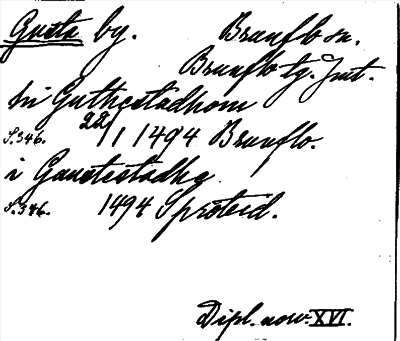 Gusta by. Brunflo sn.
Brunflo tg. Jmt.
hi Guthestadhom
S.346. 22/1 1494 Brunflo.
i Gautestadhg
S.346. 1494 Sproteid.
Dipl. norv. XVI.